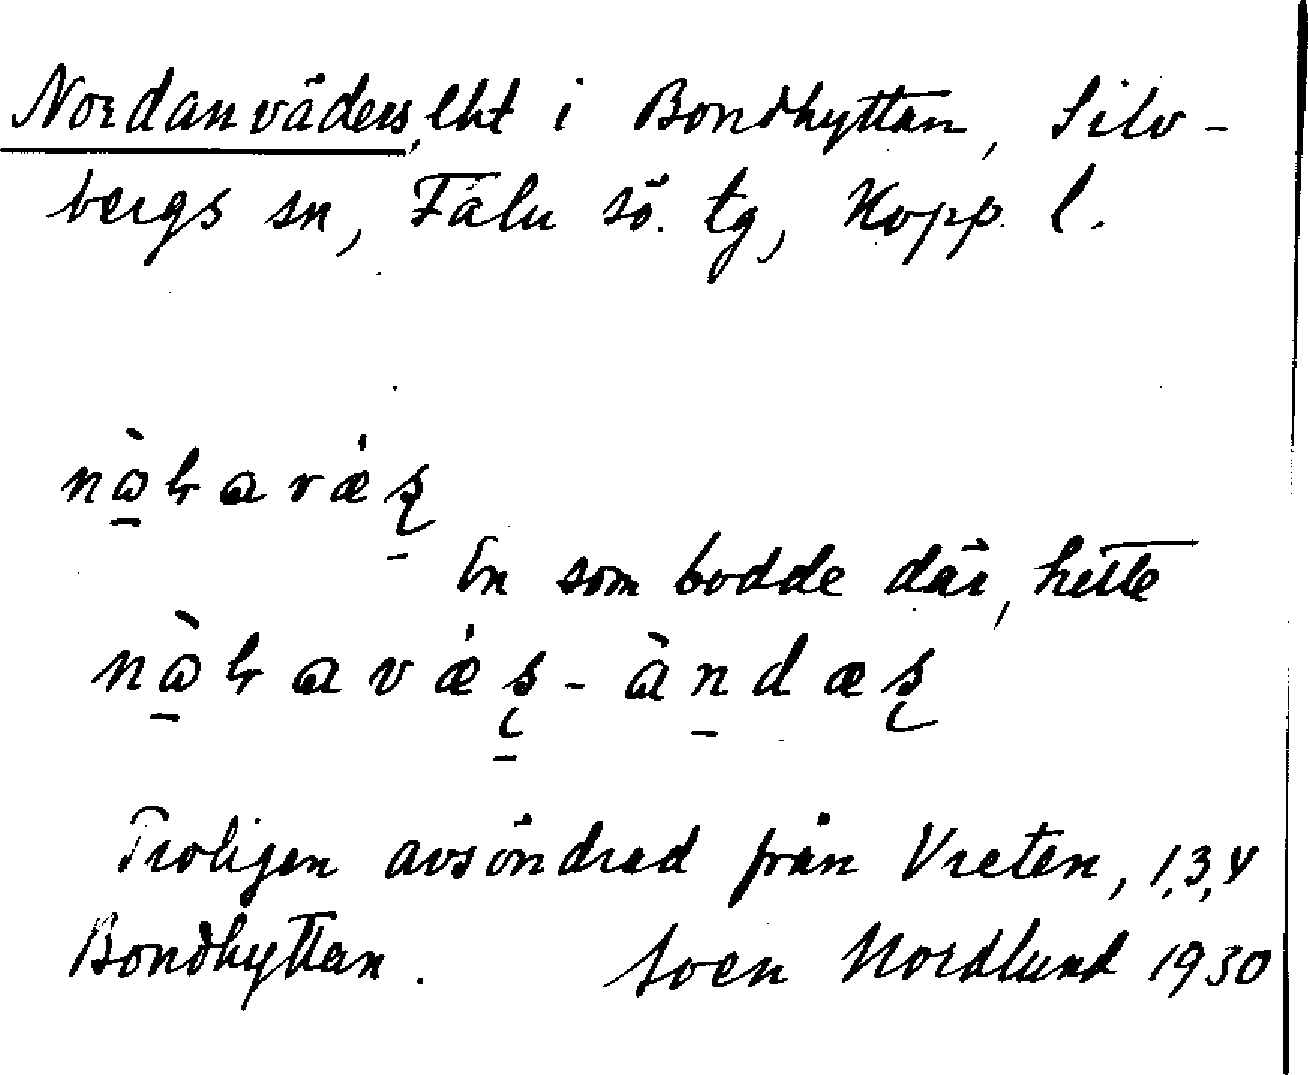 Nordanväders, lht i Bondhyttan, Silv-
bergs sn, Falu sö. tg, Kopp. l.
En som bodde där, hette
Troligen avsöndrad från Vreten, 1,3,4
Bondhyttan. Sven Nordlund 1930